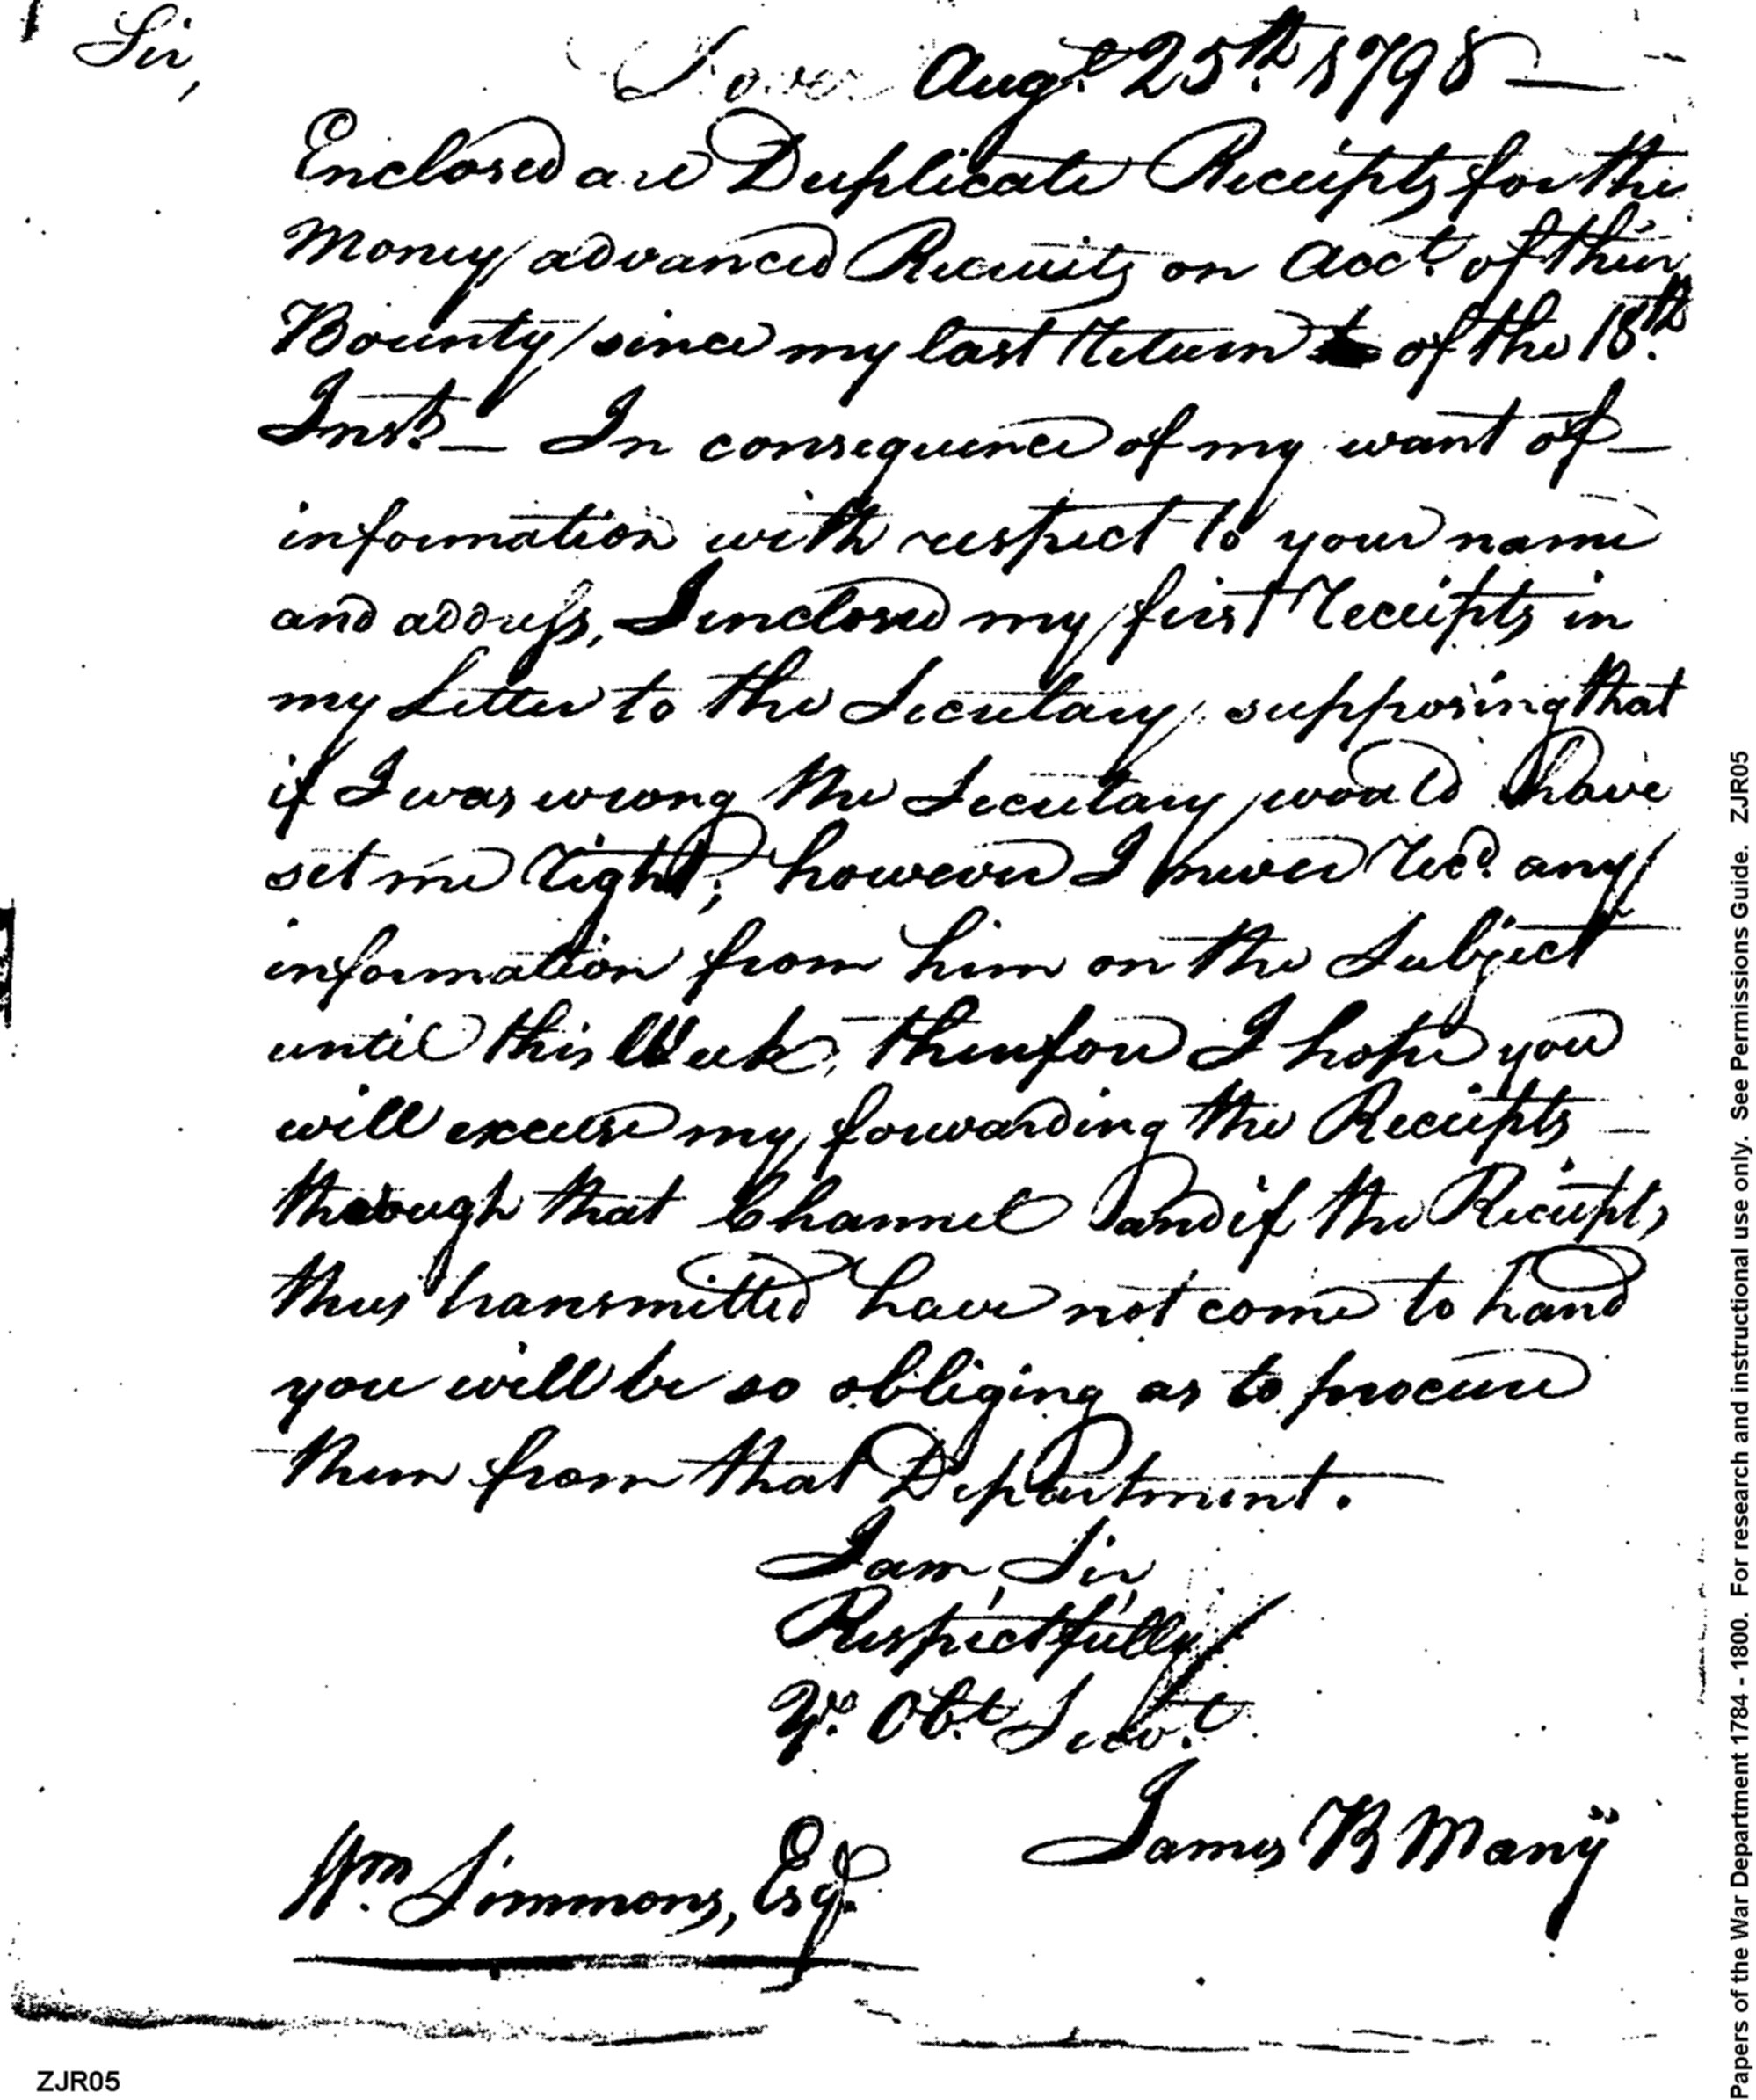 Sir,
Dover Augt. 25th. 1798 —
Enclosed are Duplicate Receipts for the
Money advanced Recruits on Acct. of their
Bounty since my last Return of the 18th.
Inst. — In consequence of my want of —
information with respect to your name
and address, I enclosed my first receipts in
my Letter to the Secretary, supposing that
if I was wrong the Secretary would have
set me right; however I never recd. any
information from him on the Subject
until this Week, therefore I hope you
will excuse my forwarding the Receipts —
through that Channel and if the Receipts
thus transmitted have not come to hand
you will be so obliging as to procure
them from that Department.
I am Sir
Respectfully
Yr. Obt. Servt.
James B Many
Wm. Simmons, Esq.
ZJR05
Papers of the War Department 1784 - 1800. For research and instructional use only. See Permissions Guide. ZJR05